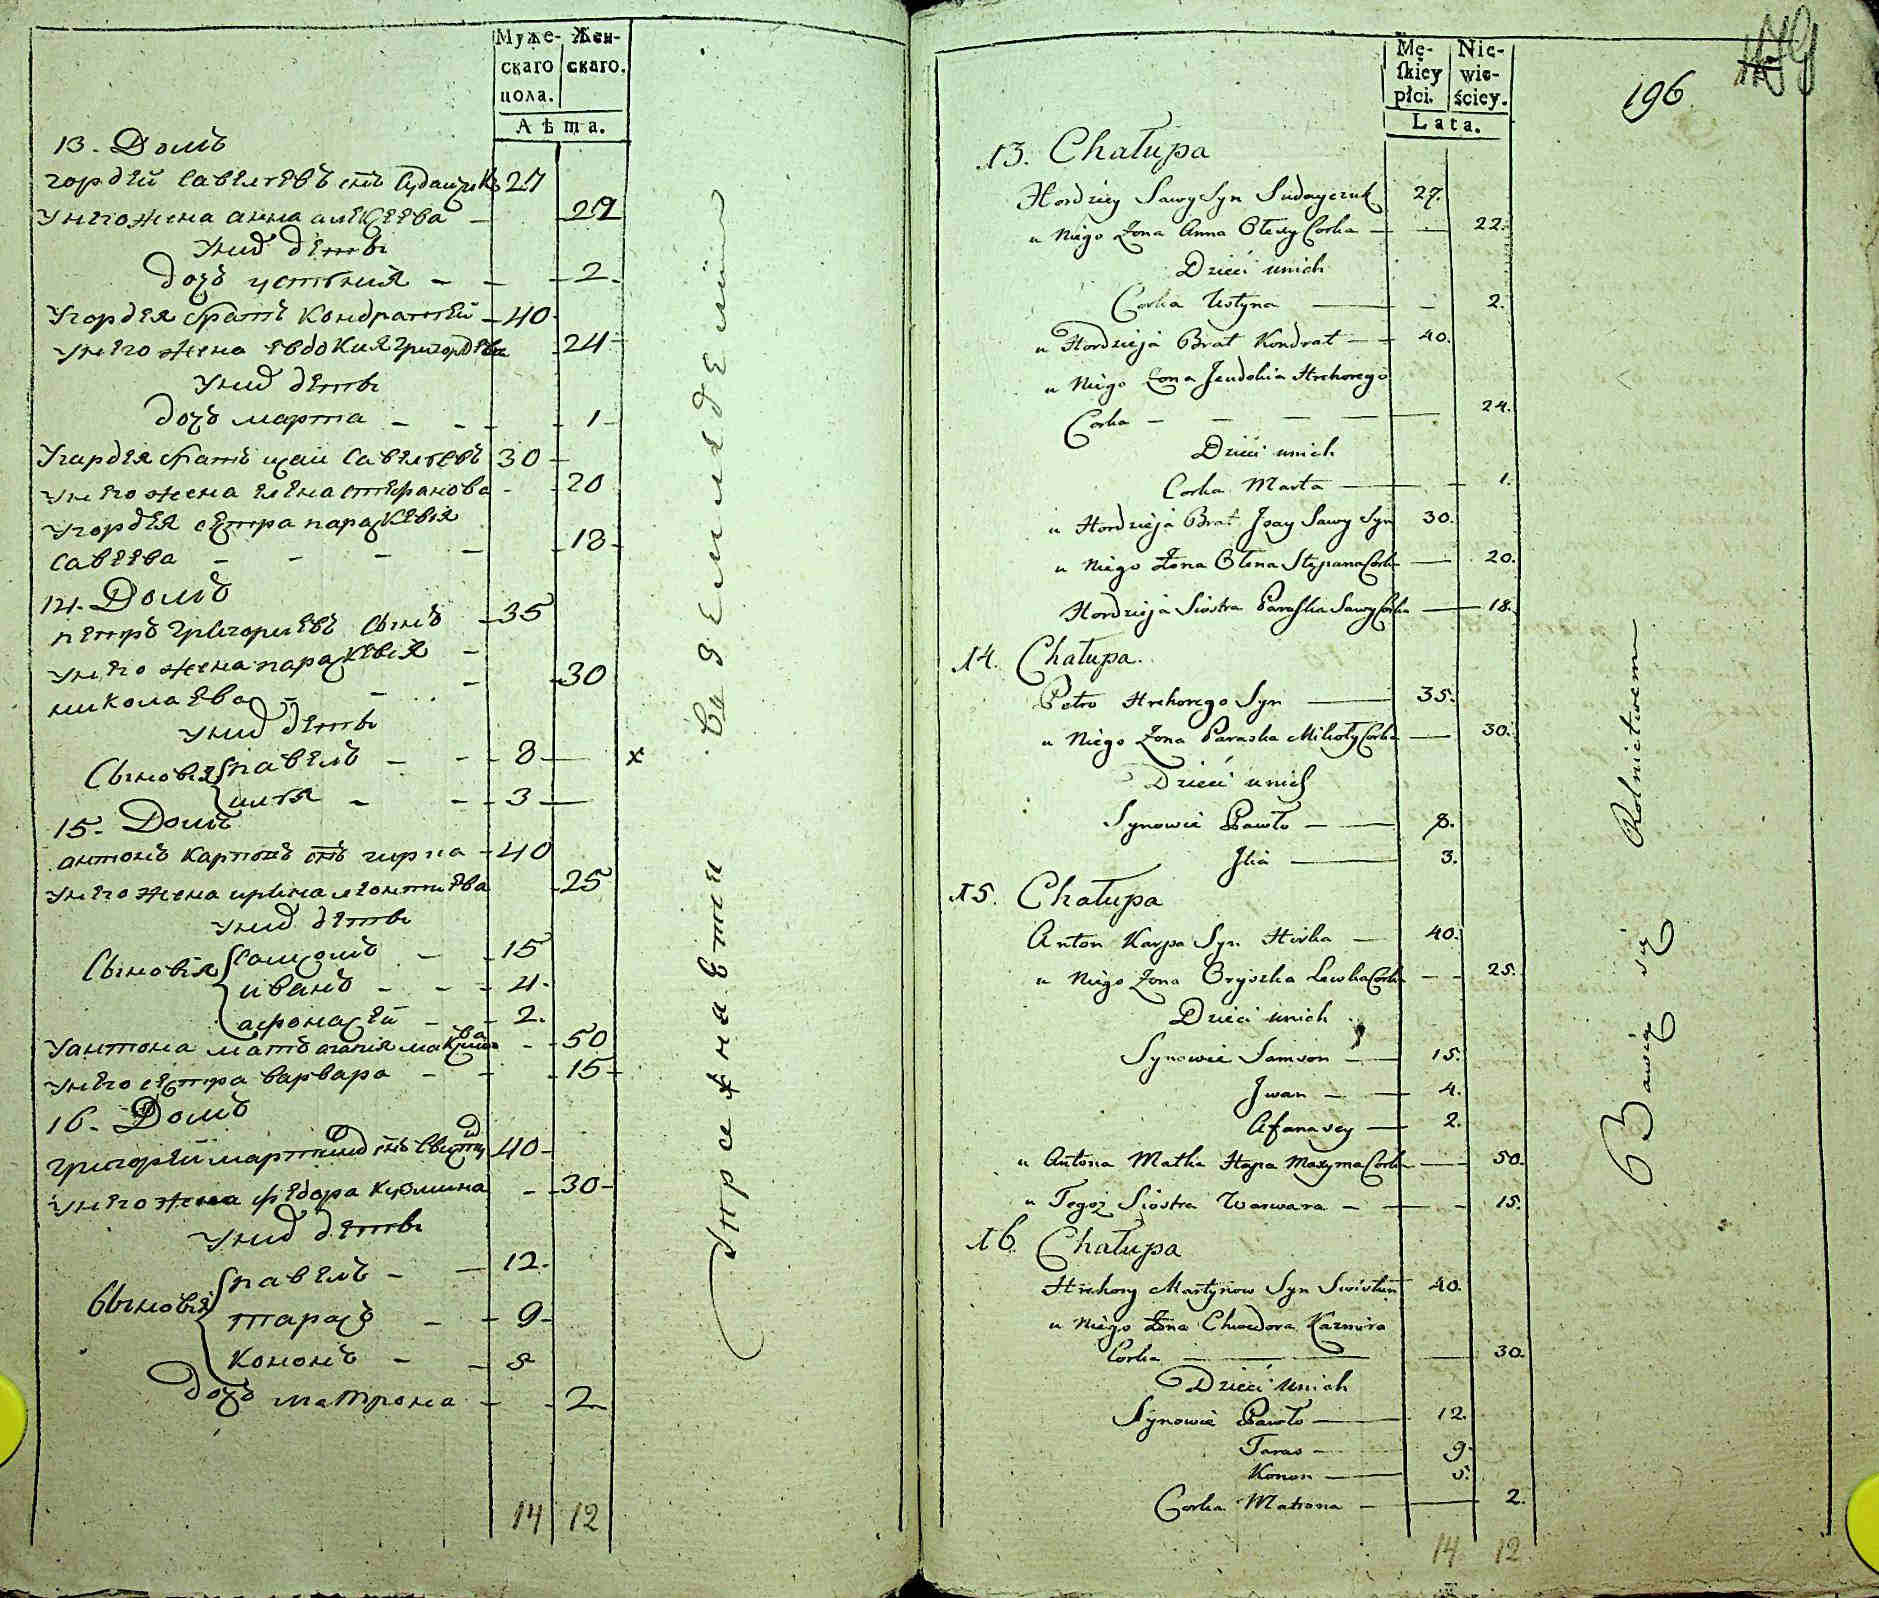 Муже-
скаго
пола.
Жен-
скаго.
Лѣта.
13. Домъ
Гордѣй Савельевъ снъ Судащукъ 27
У него жена Анна Алексѣева — 29
У них дѣти
дочь Устиния — — 2
У Гордѣя братъ Кондратей — 40
У него жена Евдокия Григорьева 24
У них дѣти
дочь Марта — — 1
У Гордѣя братъ Исай Савельевъ 30
У него жена Елена Степанова — 20
У Гордѣя сестра Параскевия
Савеева — — — — 18
14. Домъ
Петръ Григориевъ сынъ — 35
У него жена Параскевия —
Николаева — — 30
У них дѣти
Сыновья Павелъ — — 8 — х
илья — — 3 —
15. Домъ
Антонъ Карповъ снъ Гирка — 40
У него жена Ирина Леонтиева 25
У них дѣти
Сыновья Самсонъ — 15
иванъ — — 4
Афонасей — 2.
У Антона мать Агапия Максимова — 50
У него сестра Варвара — — 15
16. Домъ
Григорей Мартинов снъ Свистун 40
У него жена Федора Кузмина — 30
У них дѣти
Сыновья Павелъ — — 12.
Тарасъ — — 9
Кононъ — — 5
дочь Матрона — — 2
14 12
Упражнаются въ земледелии
196
Mę-
ſkiey
płci.
Nie-
wie-
ściey.
Lata.
13. Chałupa
Hordziey Sawy Syn Sudayczuk 27.
u Niego Żona Anna Ołexy Corka — 22.
Dzieci unich
Corka Ustyna — — 2.
u Hordzieja Brat Kondrat — — 40.
u Niego Żona Jeudokia Hrehorego
Corka — — — — 24.
Dzieci unich
Corka Marta — — 1.
u Hordzieja Brat Jsay Sawy Syn 30.
u Niego Żona Ołena Stepana Corka — 20.
Hordzieja Siostra Paraska Sawy Corka — 18.
14. Chałupa.
Petro Hrehorego Syn — 35.
u Niego Żona Paraska Mikoły Corka — 30.
Dzieci unich
Synowie Pawło — — 8.
Jlia — 3.
15. Chałupa
Anton Karpa Syn Hirka — 40.
u Niego Żona Oryszka Lewka Corka — — 25.
Dzieci unich
Synowie Samson — — 15.
Jwan — — 4.
Afanasey — 2.
u Antona Matka Hapa Maxyma Corka — 50.
u Tegoż Siostra Warwara — — — 15.
16. Chałupa
Hrehory Martynow Syn Swistun 40.
u Niego Żona Chwedora Kazmira
Corka — — 30.
Dzieci unich
Synowie Pawło — 12.
Taras — 9.
Konon — 5.
Corka Matrona — — 2.
14 12
Bawią się Rolnictwem